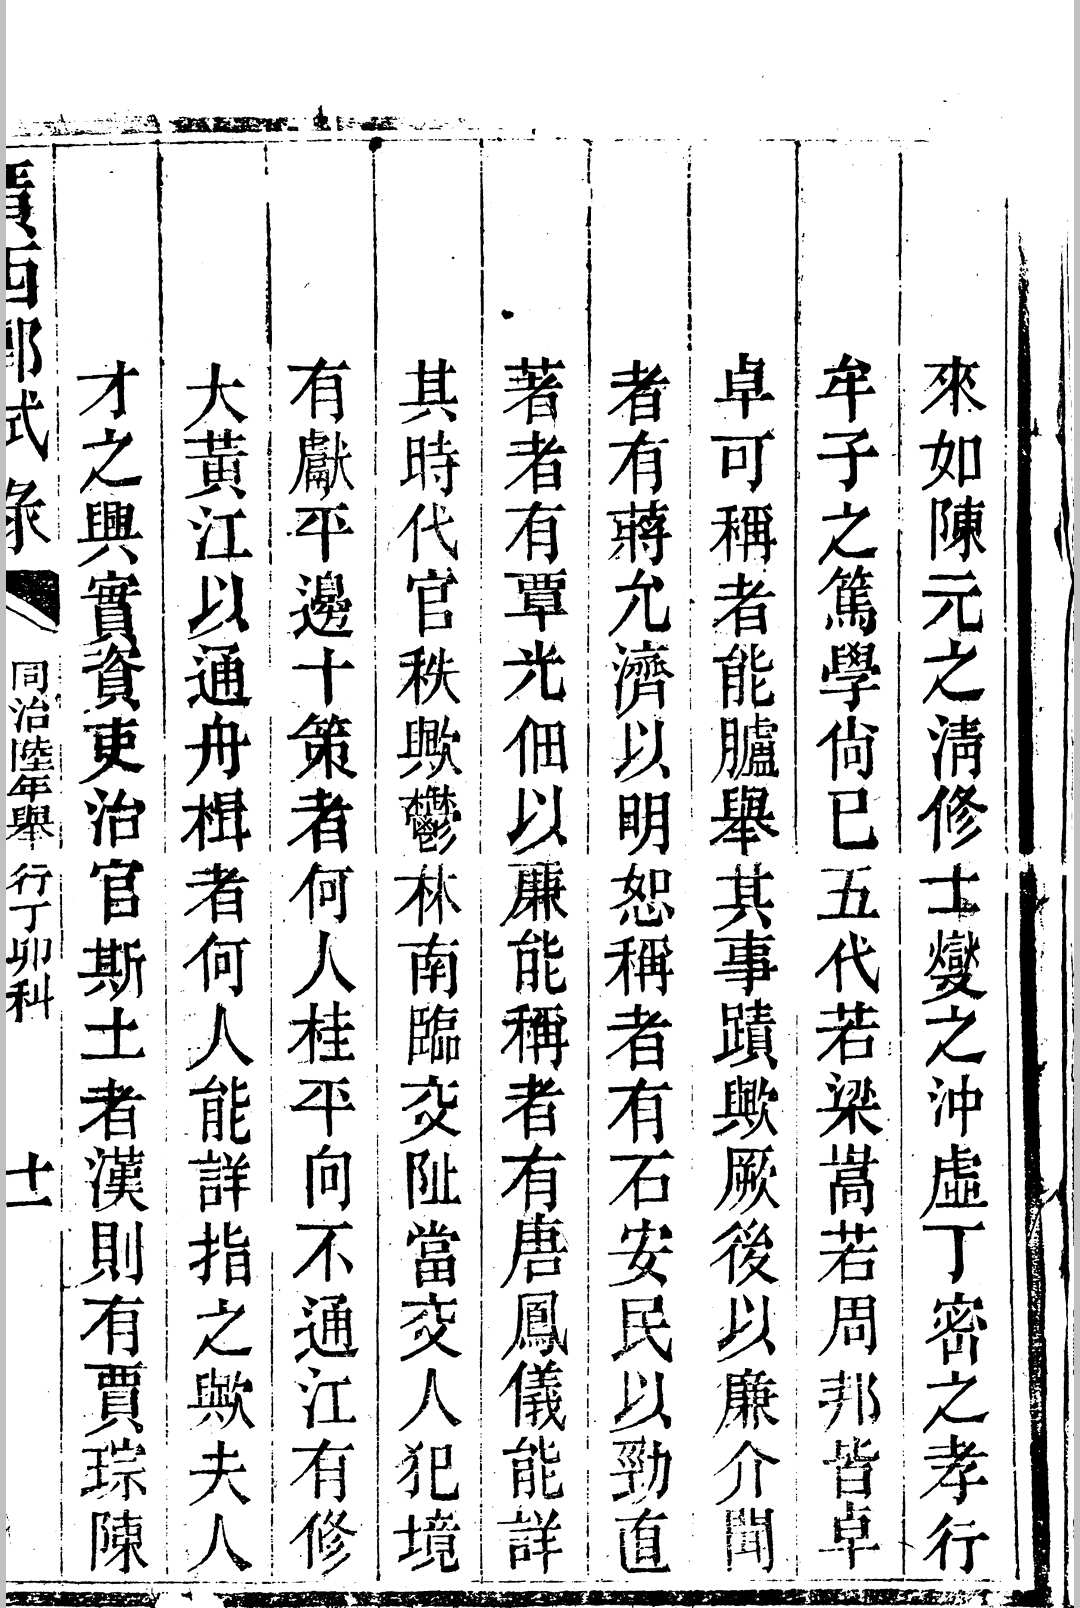 來如陳元之淸修士燮之沖虛丁密之孝行
牟子之篤學尙已五代若梁嵩若周邦皆卓
卓可稱者能臚舉其事蹟歟厥後以廉介聞
者有蔣允濟以明恕稱者有石安民以勁直
著者有覃光佃以廉能稱者有唐鳳儀能詳
其時代官秩歟鬱林南臨交阯當交人犯境
有獻平邊十策者何人桂平向不通江有修
大黃江以通舟楫者何人能詳指之歟夫人
才之興實資吏治官斯土者漢則有賈琮陳
廣西鄉試錄 同治陸年舉行丁卯科 十一